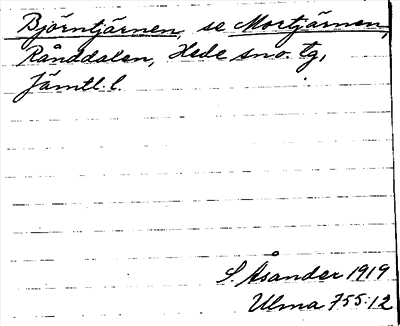 Björntjärnen, se Mortjärnen,
Rånddalen, Hede sn o. tg,
Jämtl. l.
S. Åsander 1919
Ulma 755:12